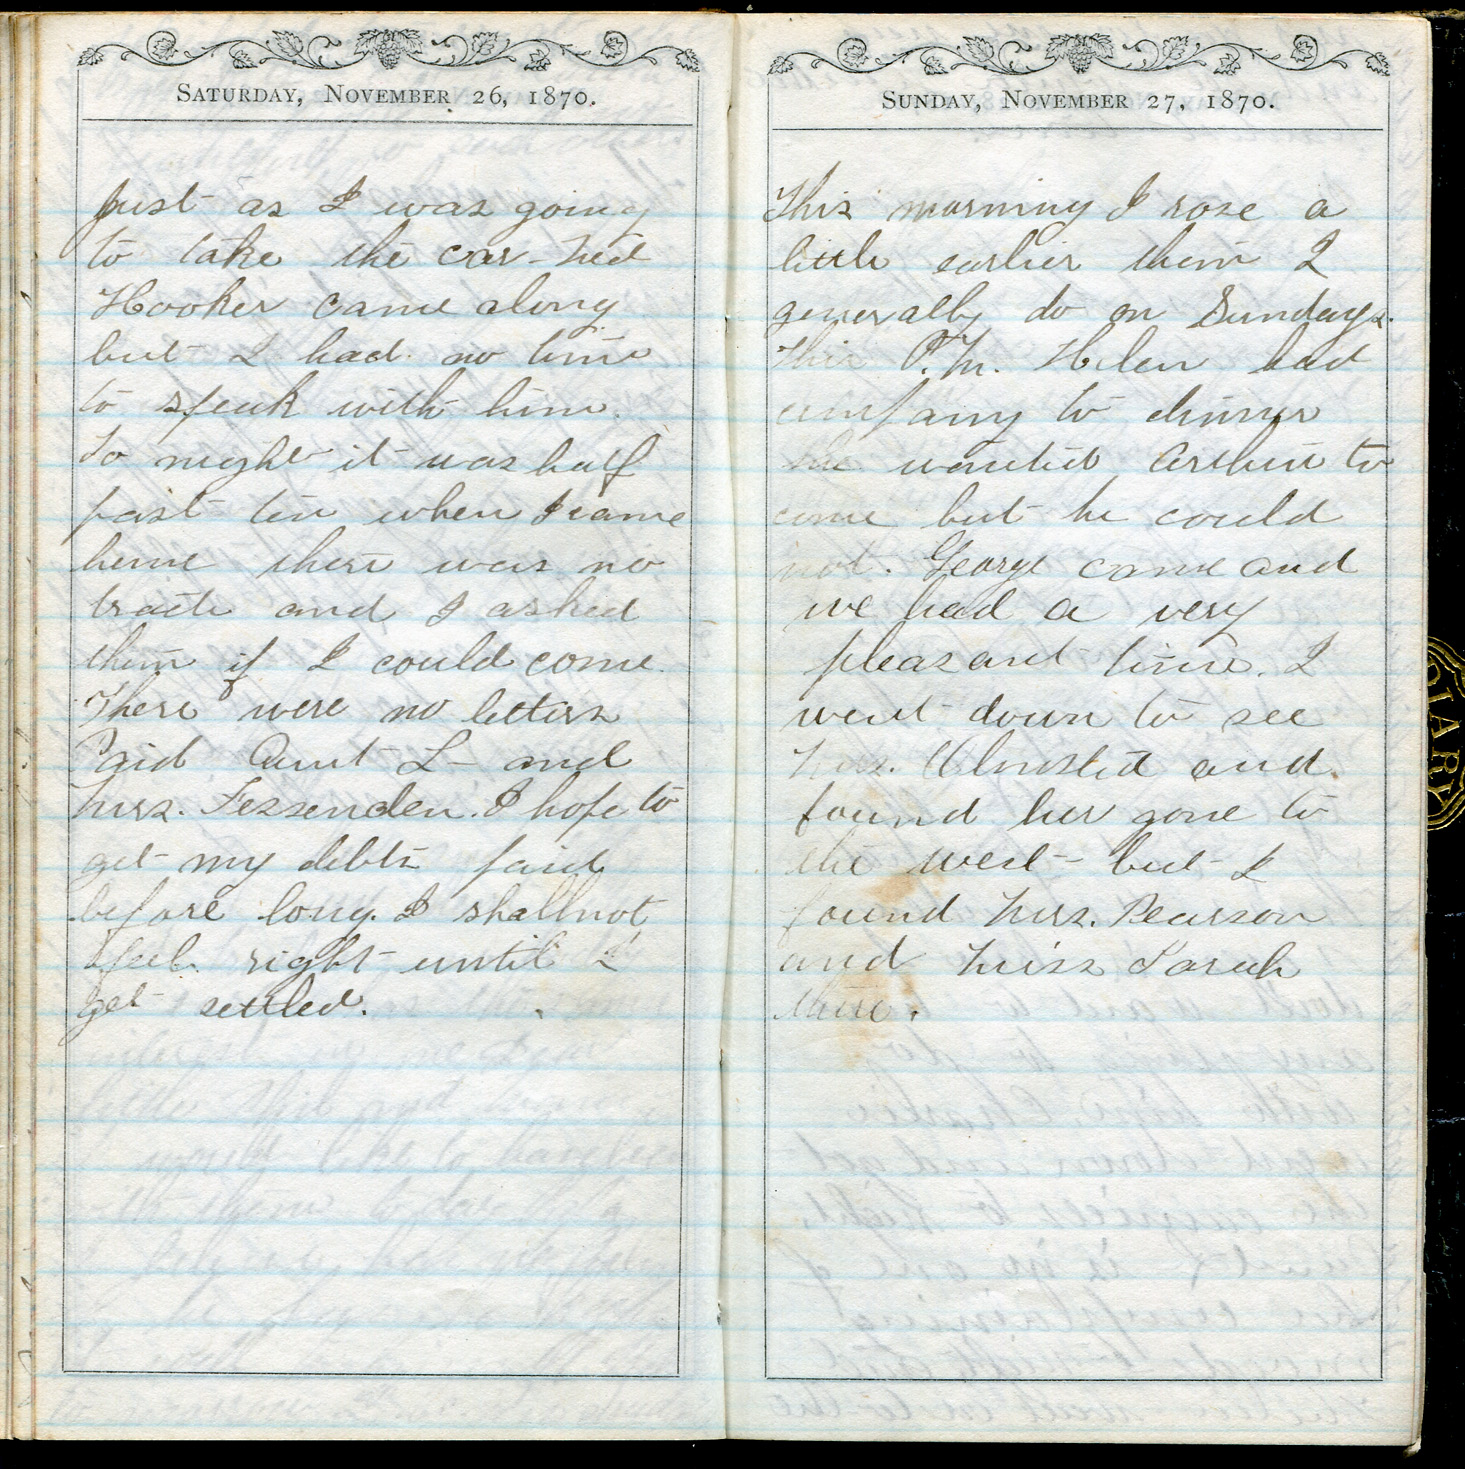 SATURDAY, NOVEMBER 26, 1870.
Just as I was going
to take the car - Ned
Hooker came along
but I had no time
to speak with him.
To night it was half
past ten when I came
home there was no
and I asked
them if I could come.
There were no letters
Paid Aunt L - and
Mrs. Fessenden. I hope to
get my debts paid
before long. I shall not
feel right until I
get settled.
SUNDAY, NOVEMBER 27, 1870.
This morning I rose a
little earlier then I
generally do on Sundays.
This P.M. Helen had
company to dinner
she wanted Arthur to
come but he could
not. George came and
we had a very
pleasant time. I
went down to see
Mrs. Olmsted and
found her gone to
the west - but I
found Mrs. Pearson
and Miss Sarah
there.
DIARY